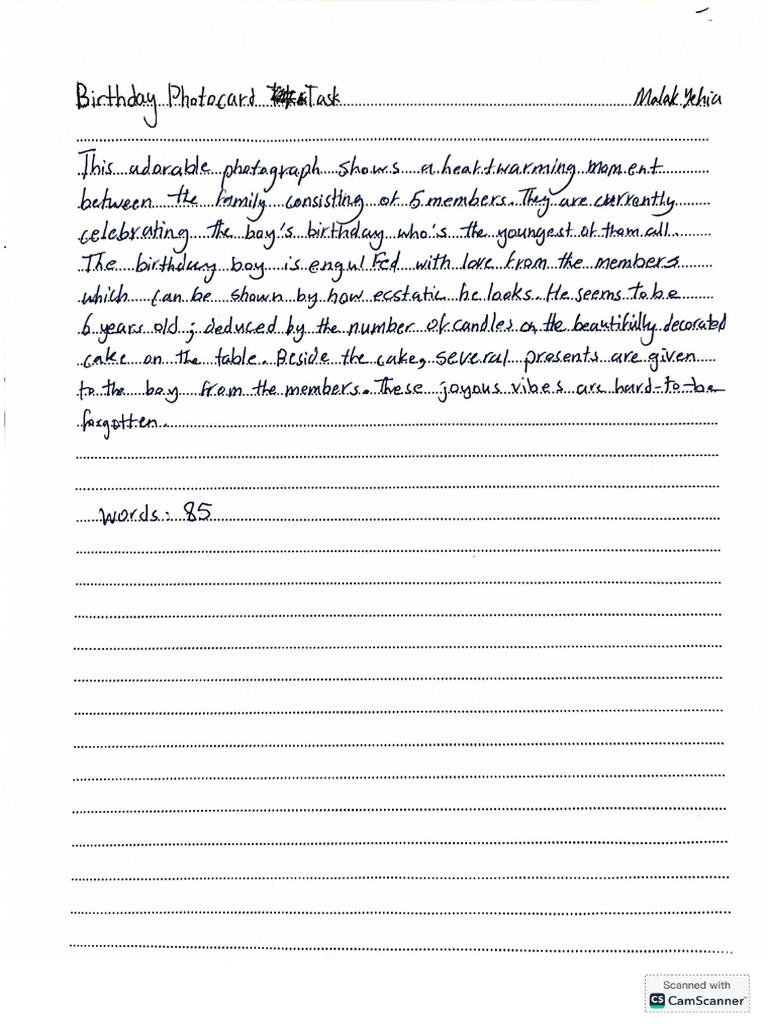 Birthday Photocard Task
Malak Yehia
This adorable photograph shows a heartwarming moment
between the family consisting of 5 members. They are currently
celebrating the boy's birthday who's the youngest of them all.
The birthday boy is engulfed with love from the members
which can be shown by how ecstatic he looks. He seems to be
6 years old ; deduced by the number of candles on the beautifully decorated
cake on the table. Beside the cake, several presents are given
to the boy from the members. These joyous vibes are hard-to-be
forgotten.
words: 85
Scanned with
CS CamScanner